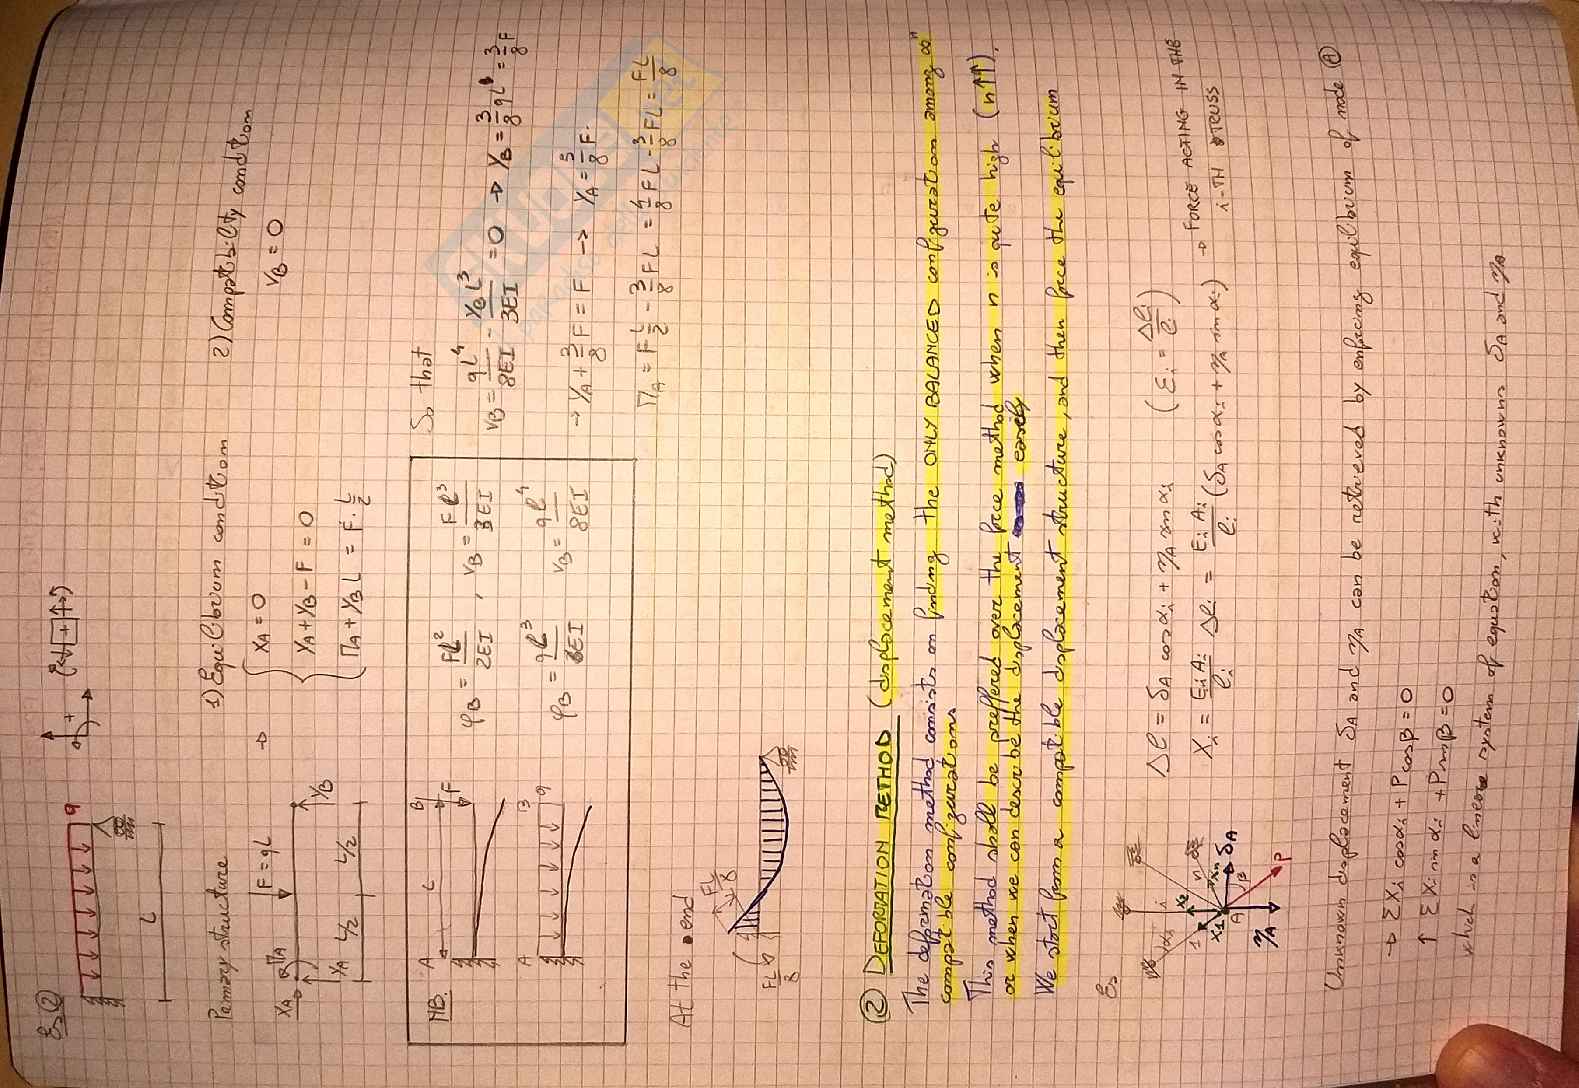 Es②
q
L
Primary structure
F = qL
X_A
M_A
Y_A
Y_B
L/2
L/2
1) Equilibrium condition
X_A = 0
Y_A + Y_B - F = 0
M_A + Y_B L = F · L/2
2) Compatibility condition
v_B = 0
NB.
A L B F
φ_B = FL²/2EI , v_B = Fl³/3EI
A B q
φ_B = ql³/6EI v_B = ql⁴/8EI
So that
v_B = qL⁴/8EI - Y_B L³/3EI = 0 → Y_B = 3/8 qL = 3/8 F
→ Y_A + 3/8 F = F → Y_A = 5/8 F.
M_A = F L/2 - 3/8 FL = 4/8 FL - 3/8 FL = FL/8
At the end
FL/8
FL/8
② DEFORMATION METHOD (displacement method)
The deformation method consists on finding the ONLY BALANCED configuration among ∞ⁿ
compatible configurations
This method shall be preffered over the force method when n is quite high (n↑↑),
or when we can describe the displacement easily
We start from a compatible displacement structure, and then force the equilibrium
Es
Δl = δ_A cos α_i + η_A sin α_i (ε_i = Δl_i/l_i)
X_i = E_i A_i/l_i Δl_i = E_i A_i/l_i (δ_A cos α_i + η_A sin α_i) → FORCE ACTING IN THE
i-TH TRUSS
1 i n
α_i
X_1 X_2 X_n
A δ_A
β
η_A P
Unknown displacement δ_A and η_A can be retrieved by enforcing equilibrium of node Ⓐ
→ Σ X_i cos α_i + P cos β = 0
↑ Σ X_i sin α_i + P sin β = 0
which is a linear system of equation, with unknowns δ_A and η_A